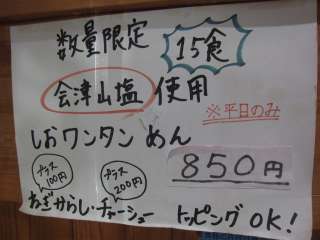 数量限定 15食
会津山塩 使用
※平日のみ
しおワンタンめん
850円
プラス100円 プラス200円
ねぎからし・チャーシュー トッピングOK!